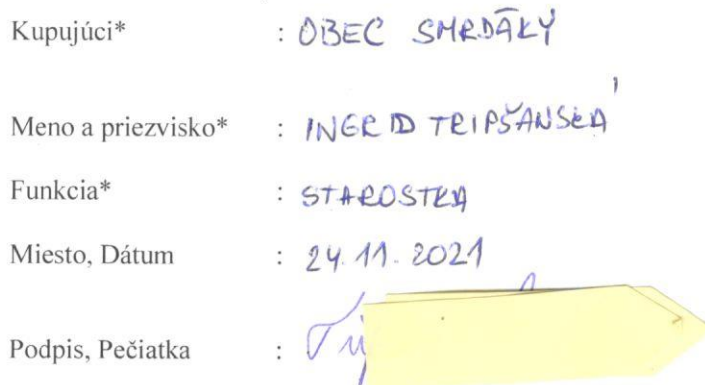 Kupujúci* : OBEC SMRDÁKY
Meno a priezvisko* : INGRID TRIPŠANSKÁ
Funkcia* : STAROSTKA
Miesto, Dátum : 24.11.2021
Podpis, Pečiatka :